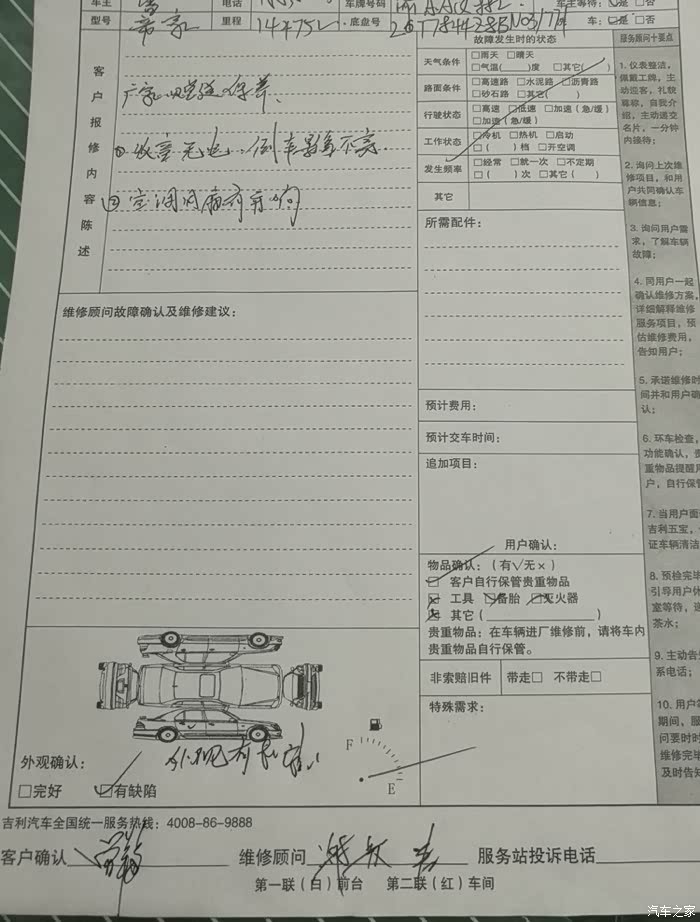 车主 电话 车牌号码 车主等待：☑是 □否
型号 帝豪 里程 14475 底盘号 车：☑是 □否
客户报修内容陈述
保养、
① 倒车影像不亮
② 空调
故障发生时的状态
天气条件 □雨天 □晴天
□气温( )度 □其它( )
路面条件 □高速路 □水泥路 □沥青路
□砂石路 □其它( )
行驶状态 □高速 □低速 □加速（急/缓）
□加速（急/缓）
工作状态 □冷机 □热机 □启动
□( )档 □开空调
发生频率 □经常 □就一次 □不定期
□( )次 □其它( )
其它
所需配件：
维修顾问故障确认及维修建议：
预计费用：
预计交车时间：
追加项目：
用户确认：
物品确认：（有√无×）
□ 客户自行保管贵重物品
工具 □备胎 □灭火器
其它( )
贵重物品：在车辆进厂维修前，请将车内
贵重物品自行保管。
非索赔旧件 带走□ 不带走□
特殊需求：
服务顾问十要点
1. 仪表整洁，
佩戴工牌，主
动迎客，礼貌
尊称，自我介
绍，主动递交
名片，一分钟
内接待；
2. 询问上次维
修项目，和用
户共同确认车
辆信息；
3. 询问用户需
求，了解车辆
故障；
4. 同用户一起
确认维修方案，
详细解释维修
服务项目，预
估维修费用，
告知用户；
5. 承诺维修时
间并和用户确
认；
6. 环车检查，
功能确认，贵
重物品提醒用
户，自行保管
7. 当用户面
吉利五宝，
证车辆清洁
8. 预检完毕
引导用户休
室等待，送
茶水；
9. 主动告
系电话；
10. 用户
期间，服
问要时时
维修完毕
及时告知
外观有
F
E
外观确认：
□完好 ☑有缺陷
吉利汽车全国统一服务热线：4008-86-9888
客户确认 维修顾问 服务站投诉电话
第一联（白）前台 第二联（红）车间
汽车之家